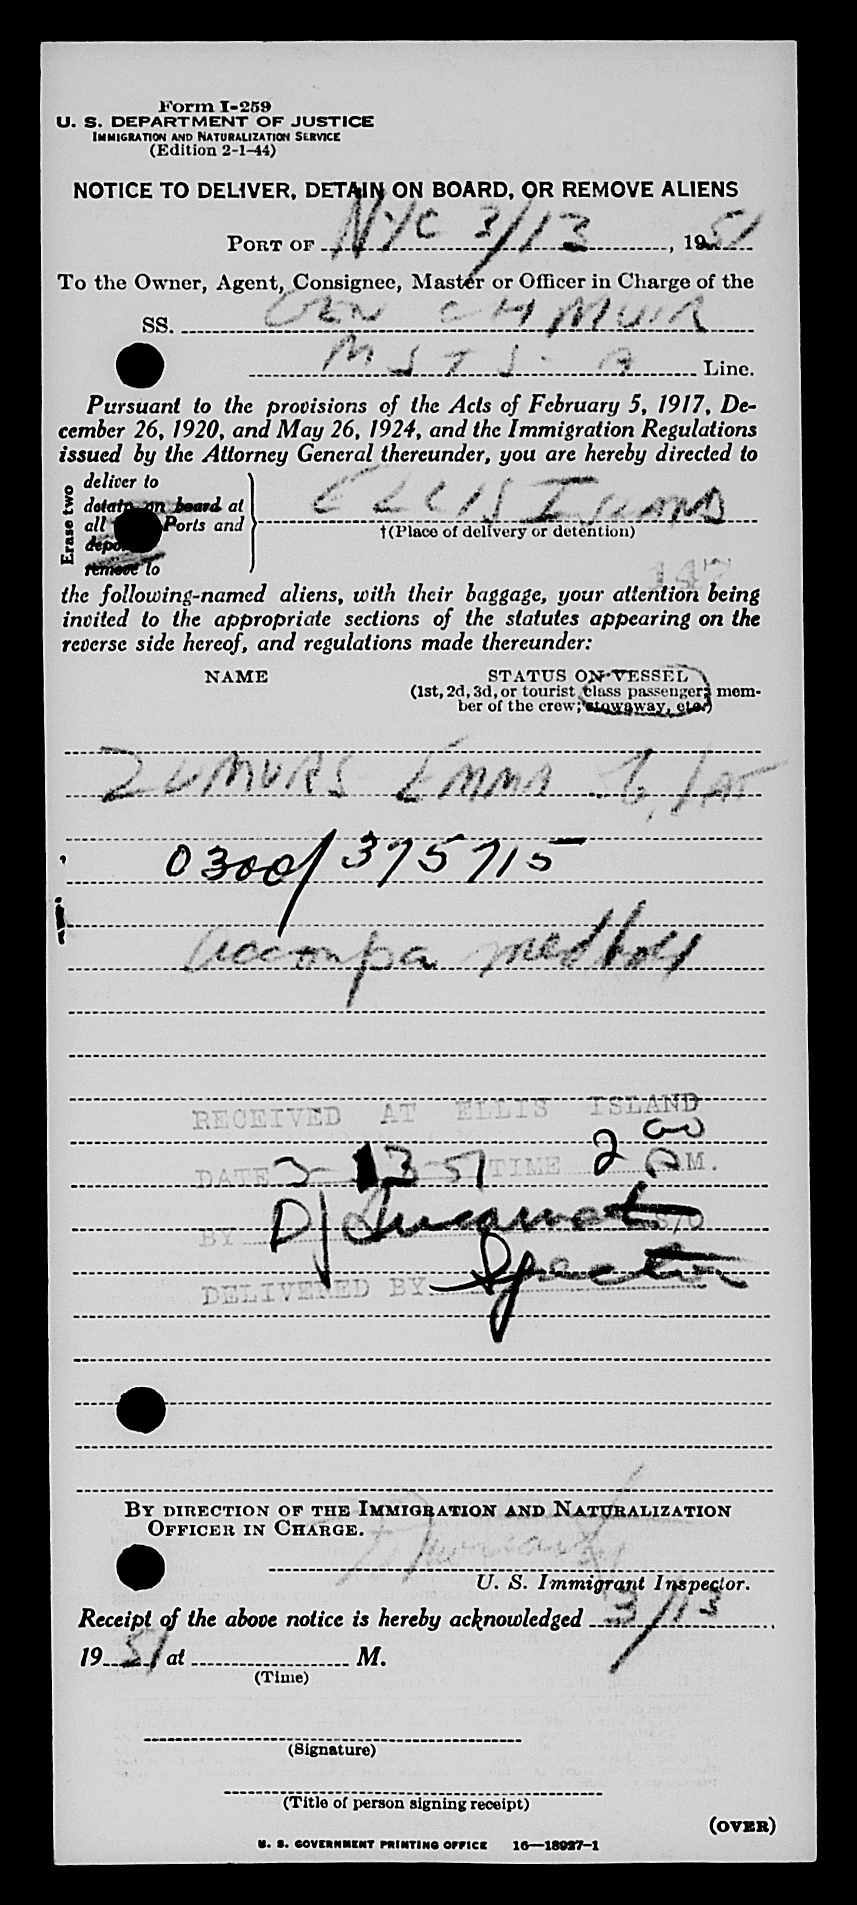 Form I-259
U. S. DEPARTMENT OF JUSTICE
IMMIGRATION AND NATURALIZATION SERVICE
(Edition 2-1-44)
NOTICE TO DELIVER, DETAIN ON BOARD, OR REMOVE ALIENS
PORT OF NYC 3/13, 1951
To the Owner, Agent, Consignee, Master or Officer in Charge of the
SS. GEN C H MUIR
M S T S - A Line.
Pursuant to the provisions of the Acts of February 5, 1917, De-
cember 26, 1920, and May 26, 1924, and the Immigration Regulations
issued by the Attorney General thereunder, you are hereby directed to
Erase two
deliver to
detain on board at
all Ports and
remove to
ELLIS ISLAND
†(Place of delivery or detention)
147
the following-named aliens, with their baggage, your attention being
invited to the appropriate sections of the statutes appearing on the
reverse side hereof, and regulations made thereunder:
NAME STATUS ON VESSEL
(1st, 2d, 3d, or tourist class passenger; mem-
ber of the crew; stowaway, etc.)
EMMA
0300/375715
accompa med hold
RECEIVED AT ELLIS ISLAND
DATE 3-13-51 TIME 2 00 PM.
BY
DELIVERED BY Spector
BY DIRECTION OF THE IMMIGRATION AND NATURALIZATION
OFFICER IN CHARGE.
U. S. Immigrant Inspector.
Receipt of the above notice is hereby acknowledged 3/13
1951 at M.
(Time)
(Signature)
(Title of person signing receipt)
(OVER)
U. S. GOVERNMENT PRINTING OFFICE 16—18927-1